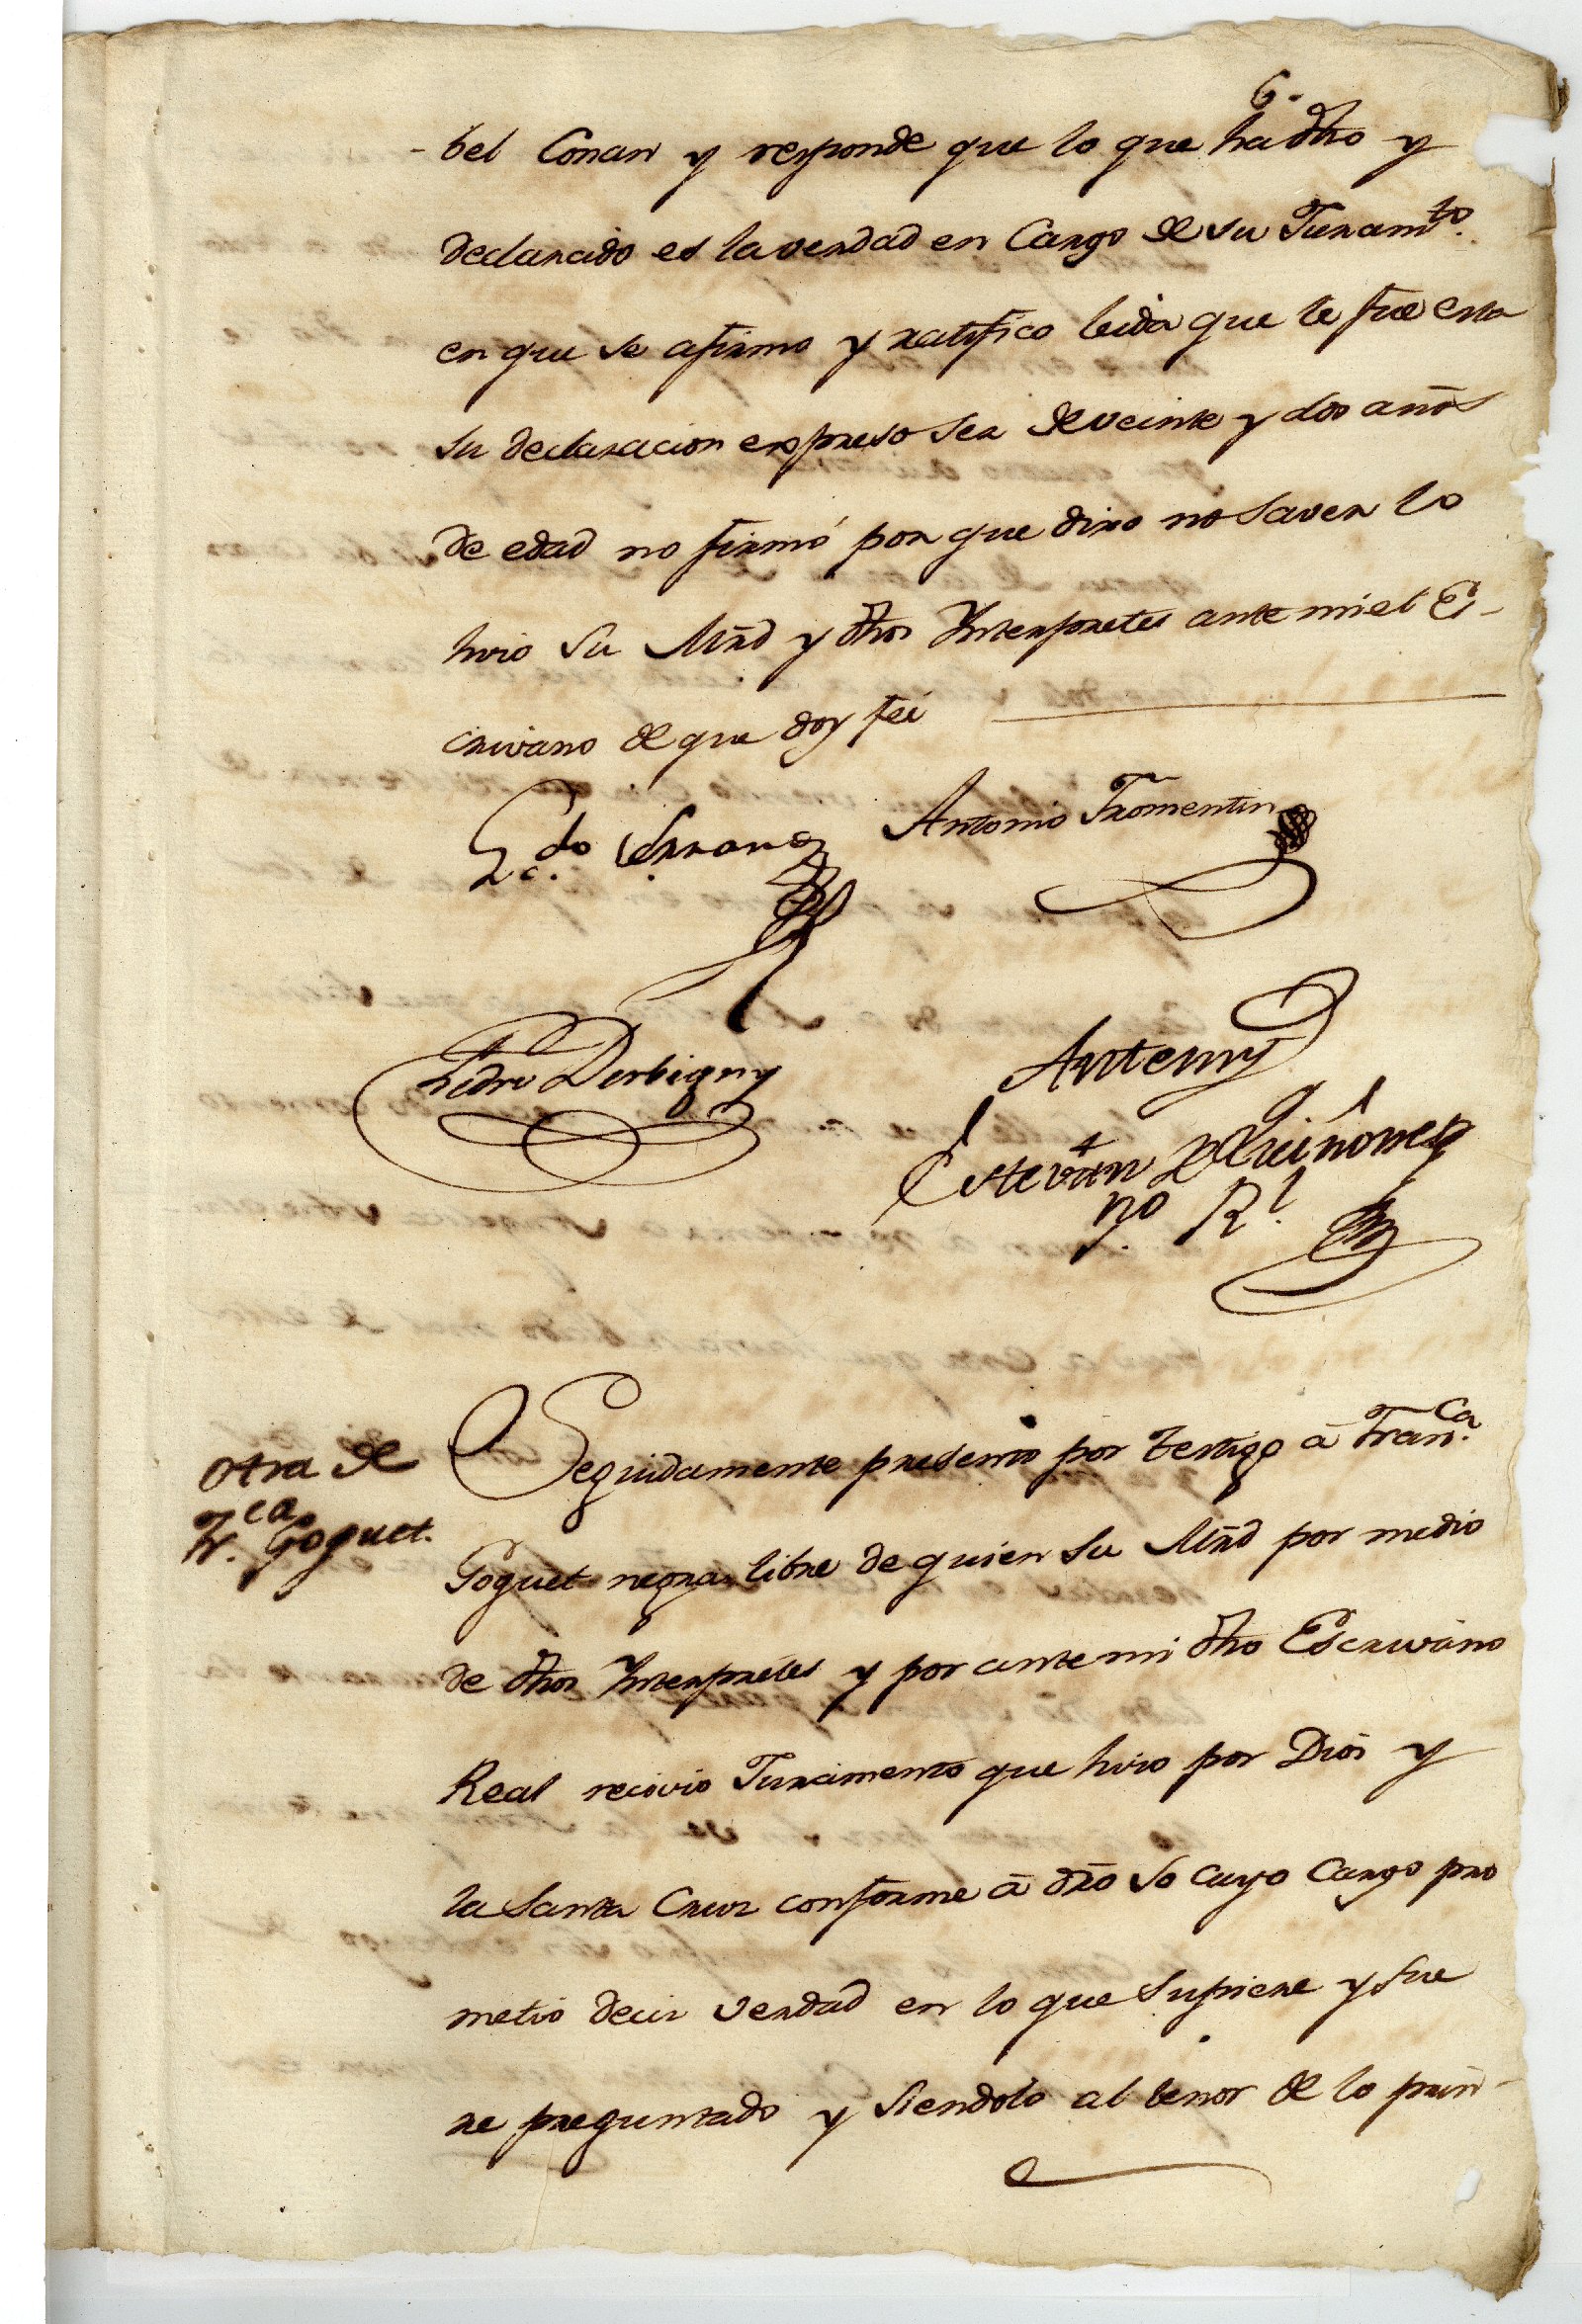 6.
-bel Conan y responde que lo que ha dho y
declarado es la verdad en Cargo de su Juramto.
en que se afirmo y ratifico leida que le fue esta
su declaracion expreso ser de veinte y dos años
de edad no firmó por que dixo no saver lo
hivo su Mrd y dhos Ynterpretes ante mi el Es-
crivano de que doy feé
Lcdo. Serrano Antonio Fromentin
Pedro Derbigny Antemy
Estevan de Quiñones
no. Rl.
Otra de
Fr.ca Goguet.
Seguidamente presento por testigo â Fran.ca
Goguet negra libre de quien su Mrd por medio
de dhos Ynterpretes y por ante mi dho Escrivano
Real recivio Juramento que hivo por Dios y
la Santa Cruz conforme â dro so cuyo Cargo pro
metio decir verdad en lo que supiere y fue
re preguntado y siendolo al tenor de lo prin-